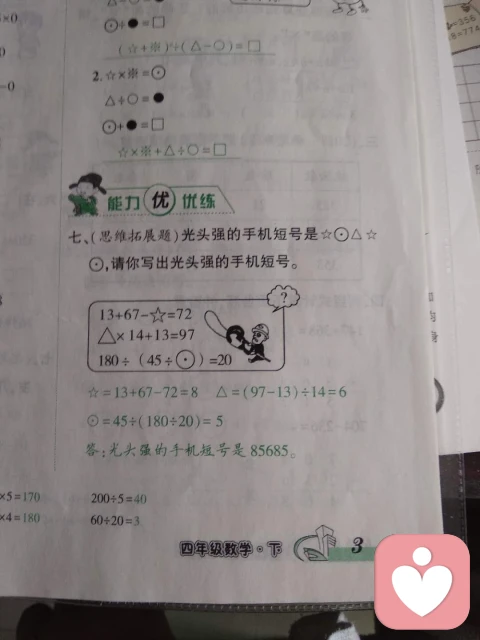 ⊙÷●=□
(☆+※)÷(△-○)=□
2.☆×※=⊙
△÷○=●
⊙+●=□
☆×※+△÷○=□
能力优优练
七、(思维拓展题)光头强的手机短号是☆⊙△☆
⊙,请你写出光头强的手机短号。
?
13+67-☆=72
△×14+13=97
180÷(45÷⊙)=20
☆=13+67-72=8 △=(97-13)÷14=6
⊙=45÷(180÷20)=5
答:光头强的手机短号是85685。
×5=170 200÷5=40
×4=180 60÷20=3
四年级数学·下 3